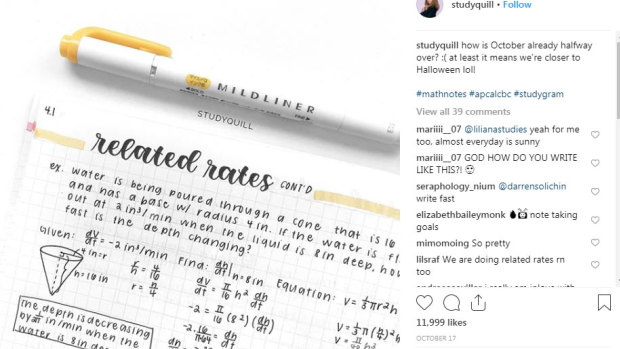 studyquill • Follow
MILDLINER
STUDYQUILL
4.1
related rates CONT'D
ex. water is being poured through a cone that is 16
and has a base w/ radius 4in. if the water is
out at 2 in³/min when the liquid is 8in deep, how
fast is the depth changing?
Given: dV/dt = -2 in³/min Find: dh/dt | h=8in Equation: V = 1/3πr²h
4in=r
h=16in
r/h = 4/16
r = h/4
dV/dt = π/16 h² dh/dt
-2 = π/16 (8²) (dh/dt)
V = 1/3π(h/4)²h
The depth is decreasing
in/min when the
water is 8in
studyquill how is October already halfway
over? :( at least it means we're closer to
Halloween lol!
#mathnotes #apcalcbc #studygram
View all 39 comments
mariiii__07 @lilianastudies yeah for me
too, almost everyday is sunny
mariiii__07 GOD HOW DO YOU WRITE
LIKE THIS?!
seraphology_nium @darrensolichin
write fast
elizabethbaileymonk note taking
goals
mimomoing So pretty
lilsraf We are doing related rates rn
too
11,999 likes
OCTOBER 17